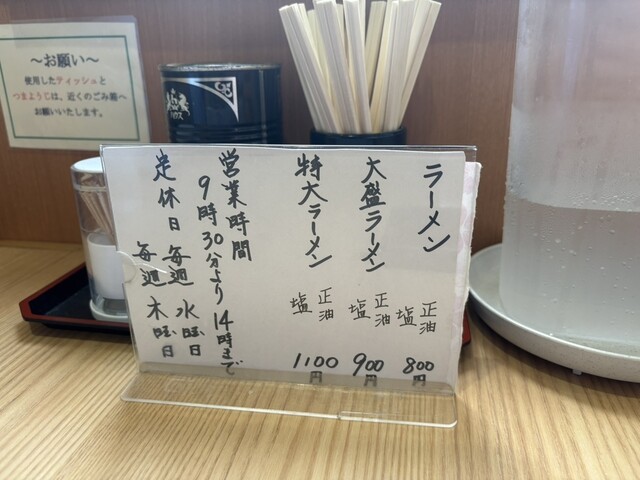 〜お願い〜
使用したティッシュと
つまようじは、近くのごみ箱へ
お願いいたします。
ハウス
ラーメン 正油 塩 800円
大盛ラーメン 正油 塩 900円
特大ラーメン 正油 塩 1100円
営業時間
9時30分より14時まで
定休日 毎週水曜日
毎週木曜日